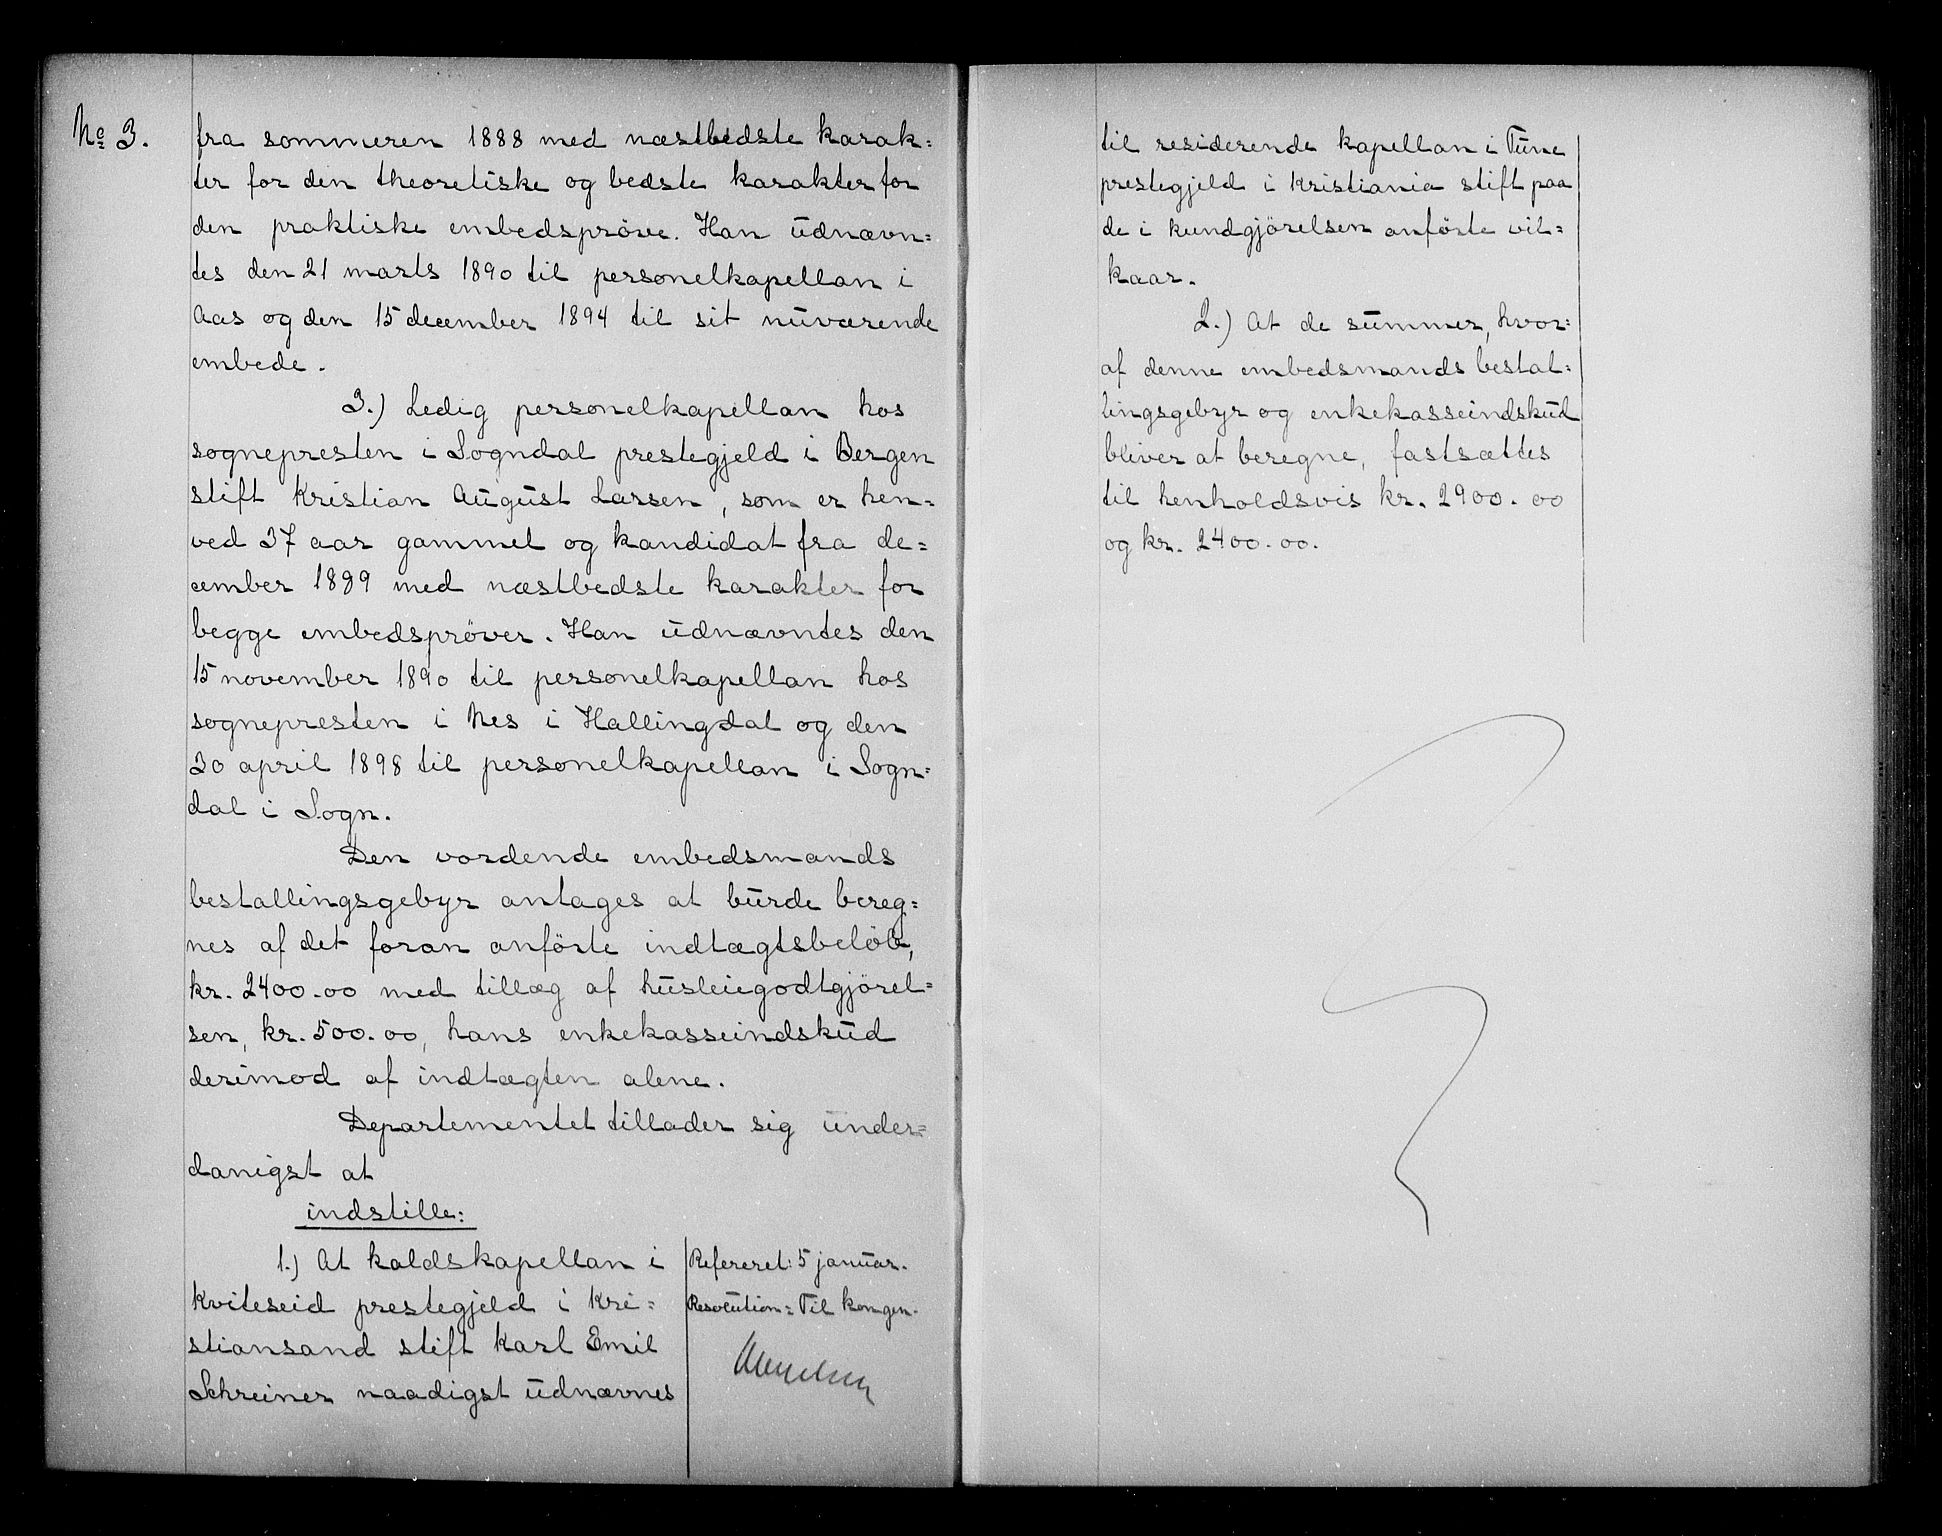 No 3.
fra sommeren 1888 med næstbedste karak=
ter for den theoretiske og bedste karakter for
den praktiske embedsprøve. Han udnævn=
tes den 21 marts 1890 til personelkapellan i
Aas og den 15 december 1894 til sit nuværende
embede.
3.) Ledig personelkapellan hos
sognepresten i Sogndal prestegjeld i Bergen
stift Kristian August Larsen, som er hen=
ved 37 aar gammel og kandidat fra de=
cember 1889 med næstbedste karakter for
begge embedsprøver. Han udnævntes den
15 november 1890 til personelkapellan hos
sognepresten i Nes i Hallingdal og den
30 april 1898 til personelkapellan i Sogn=
dal i Sogn.
Den vordende embedsmands
bestallingsgebyr antages at burde bereg=
nes af det foran anførte indtægtsbeløb,
kr. 2400.00 med tillæg af husleiegodtgjørel=
sen, kr. 500.00, hans enkekasseindskud
derimod af indtægten alene.
Departementet tillader sig under=
danigst at
indstille:
1.) At kaldskapellan i
Kviteseid prestegjeld i Kri=
stiansand stift Karl Emil
Schreiner naadigst udnævnes
Refereret: 5 januar.
Resolution: Til kongen.
til residerende kapellan i Tune
prestegjeld i Kristiania stift paa
de i kundgjørelsen anførte vil=
kaar.
2.) At de summer, hvor=
af denne embedsmands bestal=
lingsgebyr og enkekasseindskud
bliver at beregne, fastsættes
til henholdsvis kr. 2900.00
og kr. 2400.00.